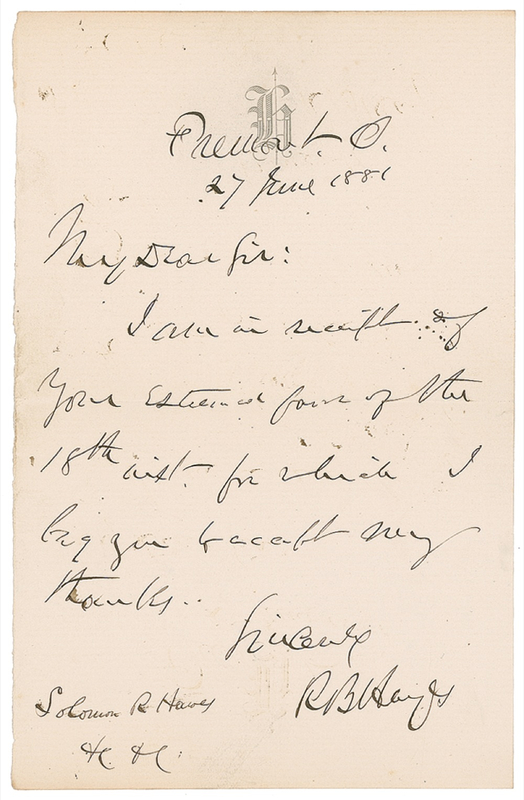 H
Fremont. O.
27 June 1881
My Dear Sir:
I am in receipt of
your esteemed favor of the
18th inst. for which I
beg you to accept my
thanks.
Sincerely
R B Hayes
Solomon R Hawes
&c. &c.